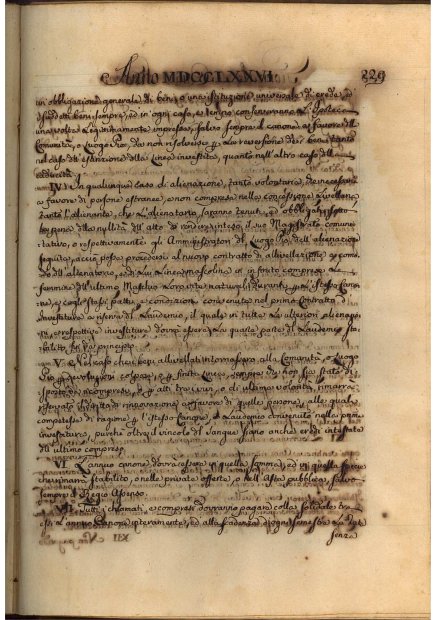 Anno MDCCLXXVI. 229
un obbligazione generale di beni, o una istituzione universale di erede, ed
i sudetti beni sempre, ed in ogni caso, e tempo conserveranno l'Ipoteca
una volta legittimamente impressa, salvo sempre il canone a favore della
Comunità, o Luogo Pio, che non si solvesse, e la reversione dei beni tanto
nel caso dell'estinzione della Linea investita, quanto nell'altro caso della
caducità.
IV. In qualunque caso di alienazione, tanto volontaria, che necessaria
a favore di persone estranee, e non comprese nella concessione Livellaria
tanto l'alienante, che l'alienatario, saranno tenuti, ed obbligati sotto
la pena della nullità dell'atto di rendere inteso il suo Magistrato comuni-
tativo, o respettivamente gli Amministratori del Luogo Pio dell'alienazione
seguita, acciò possa procedersi al nuovo contratto di allivellazione, a como-
do dell'alienatario, e di sua Linea mascolina in infinito compresa la
femmina dell'ultimo Maschio loro vita naturale durante, per l'istesso Cano-
ne, e cogli stessi patti, e condizioni convenute nel primo Contratto d'
Investitura a riserva del Laudemio, il quale in tutte le ulteriori alienazio-
ni, e respettive investiture dovrà essere la quarta parte del Laudemio sta-
bilito fin da principio.
V. Nel caso che i beni allivellati ritornassero alla Comunità, o Luogo
Pio per devoluzioni incorse, e per finita Linea, sempre che non sia stato di-
sposto da i compresi, e per atti tra i vivi, o di ultima volontà, rimarrà
riservato il diritto di rinnovazione a favore di quelle persone, alle quali
competesse di ragione per l'istesso Canone, e Laudemio convenuto nella prima
investitura, purchè oltre il vincolo del sangue siano anche eredi intestati
dell'ultimo compreso.
VI. L'annuo canone dovrà essere in quella somma, ed in quella specie
che rimarrà stabilito, o nelle private offerte, o nell'Asta pubblica, salvo
sempre il Regio Assenso.
VII. Tutti i chiamati, e compresi dovranno pagare colla solidale tra
essi l'annuo Canone interamente, ed alla scadenza di ogni semestre la rata
senza